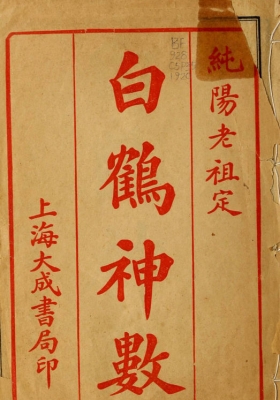 純陽老祖定
白鶴神數
上海大成書局印